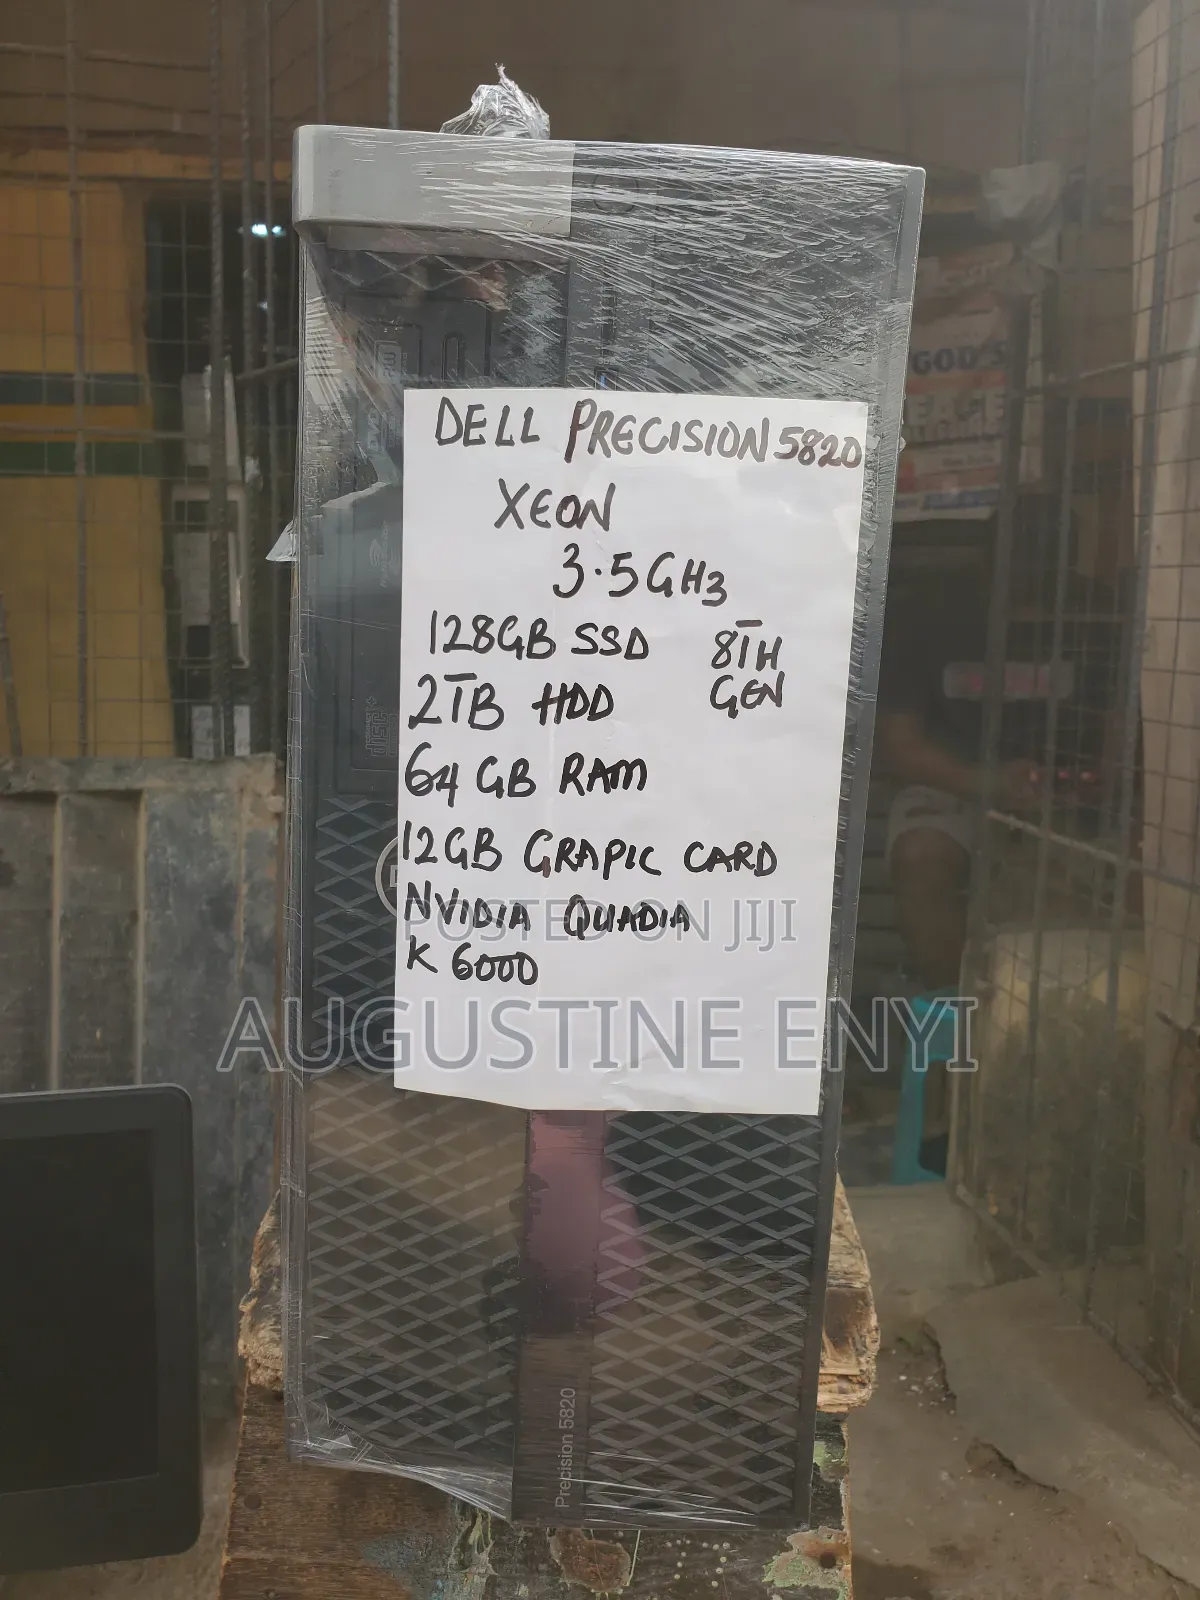 DELL PRECISION 5820
XEON
3.5GH3
128GB SSD 8TH
2TB HDD GEN
64 GB RAM
12GB GRAPIC CARD
NVIDIA QUADIA
K 6000
POSTED ON JIJI
AUGUSTINE ENYI
Precision 5820
GOD'S